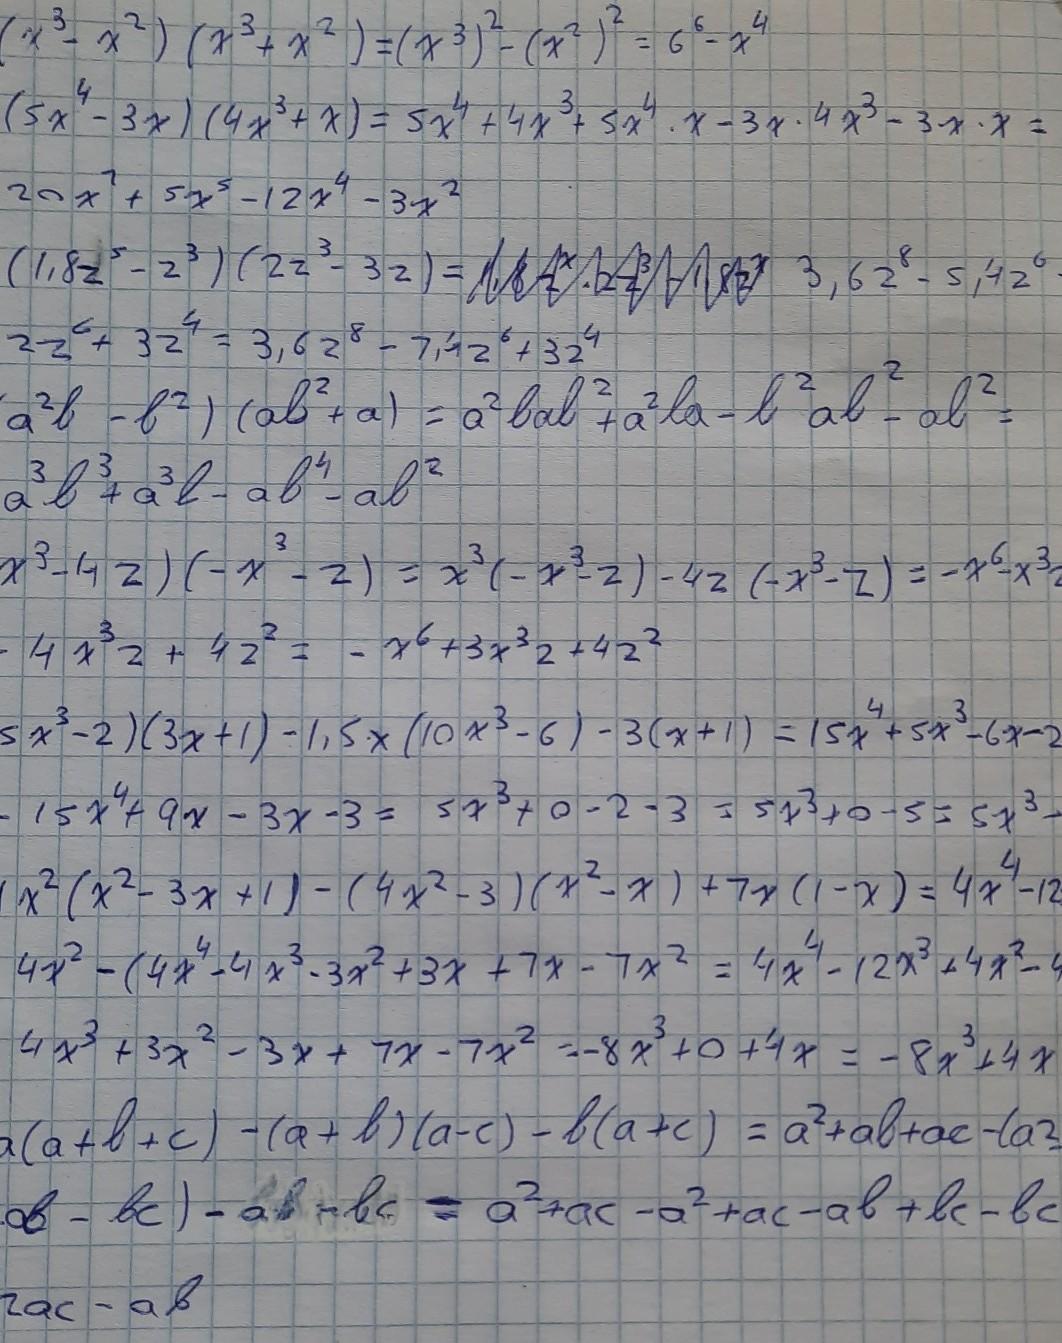 (x³ - x²) (x³ + x²) = (x³)² - (x²)² = 6⁶ - x⁴
(5x⁴ - 3x) (4x³ + x) = 5x⁴ + 4x³ + 5x⁴ · x - 3x · 4x³ - 3x · x =
20x⁷ + 5x⁵ - 12x⁴ - 3x²
(1,8z⁵ - z³) (2z³ - 3z) = 3,6z⁸ - 5,4z⁶ -
2z⁶ + 3z⁴ = 3,6z⁸ - 7,4z⁶ + 3z⁴
(a²b - b²) (ab² + a) = a²bab² + a²ba - b²ab² - ab² =
a³b³ + a³b - ab⁴ - ab²
x³ - 4z) (-x³ - z) = x³ (-x³ - z) - 4z (-x³ - z) = -x⁶ - x³z
- 4x³z + 4z² = - x⁶ + 3x³z + 4z²
5x³ - 2) (3x + 1) - 1,5x (10x³ - 6) - 3(x + 1) = 15x⁴ + 5x³ - 6x - 2
- 15x⁴ + 9x - 3x - 3 = 5x³ + 0 - 2 - 3 = 5x³ + 0 - 5 = 5x³ -
x² (x² - 3x + 1) - (4x² - 3) (x² - x) + 7x (1 - x) = 4x⁴ - 12
4x² - (4x⁴ - 4x³ - 3x² + 3x + 7x - 7x² = 4x⁴ - 12x³ + 4x² - 4
4x³ + 3x² - 3x + 7x - 7x² = -8x³ + 0 + 4x = -8x³ + 4x
a(a + b + c) - (a + b) (a - c) - b(a + c) = a² + ab + ac - (a²
ab - bc) - ab - bc = a² + ac - a² + ac - ab + bc - bc
2ac - ab